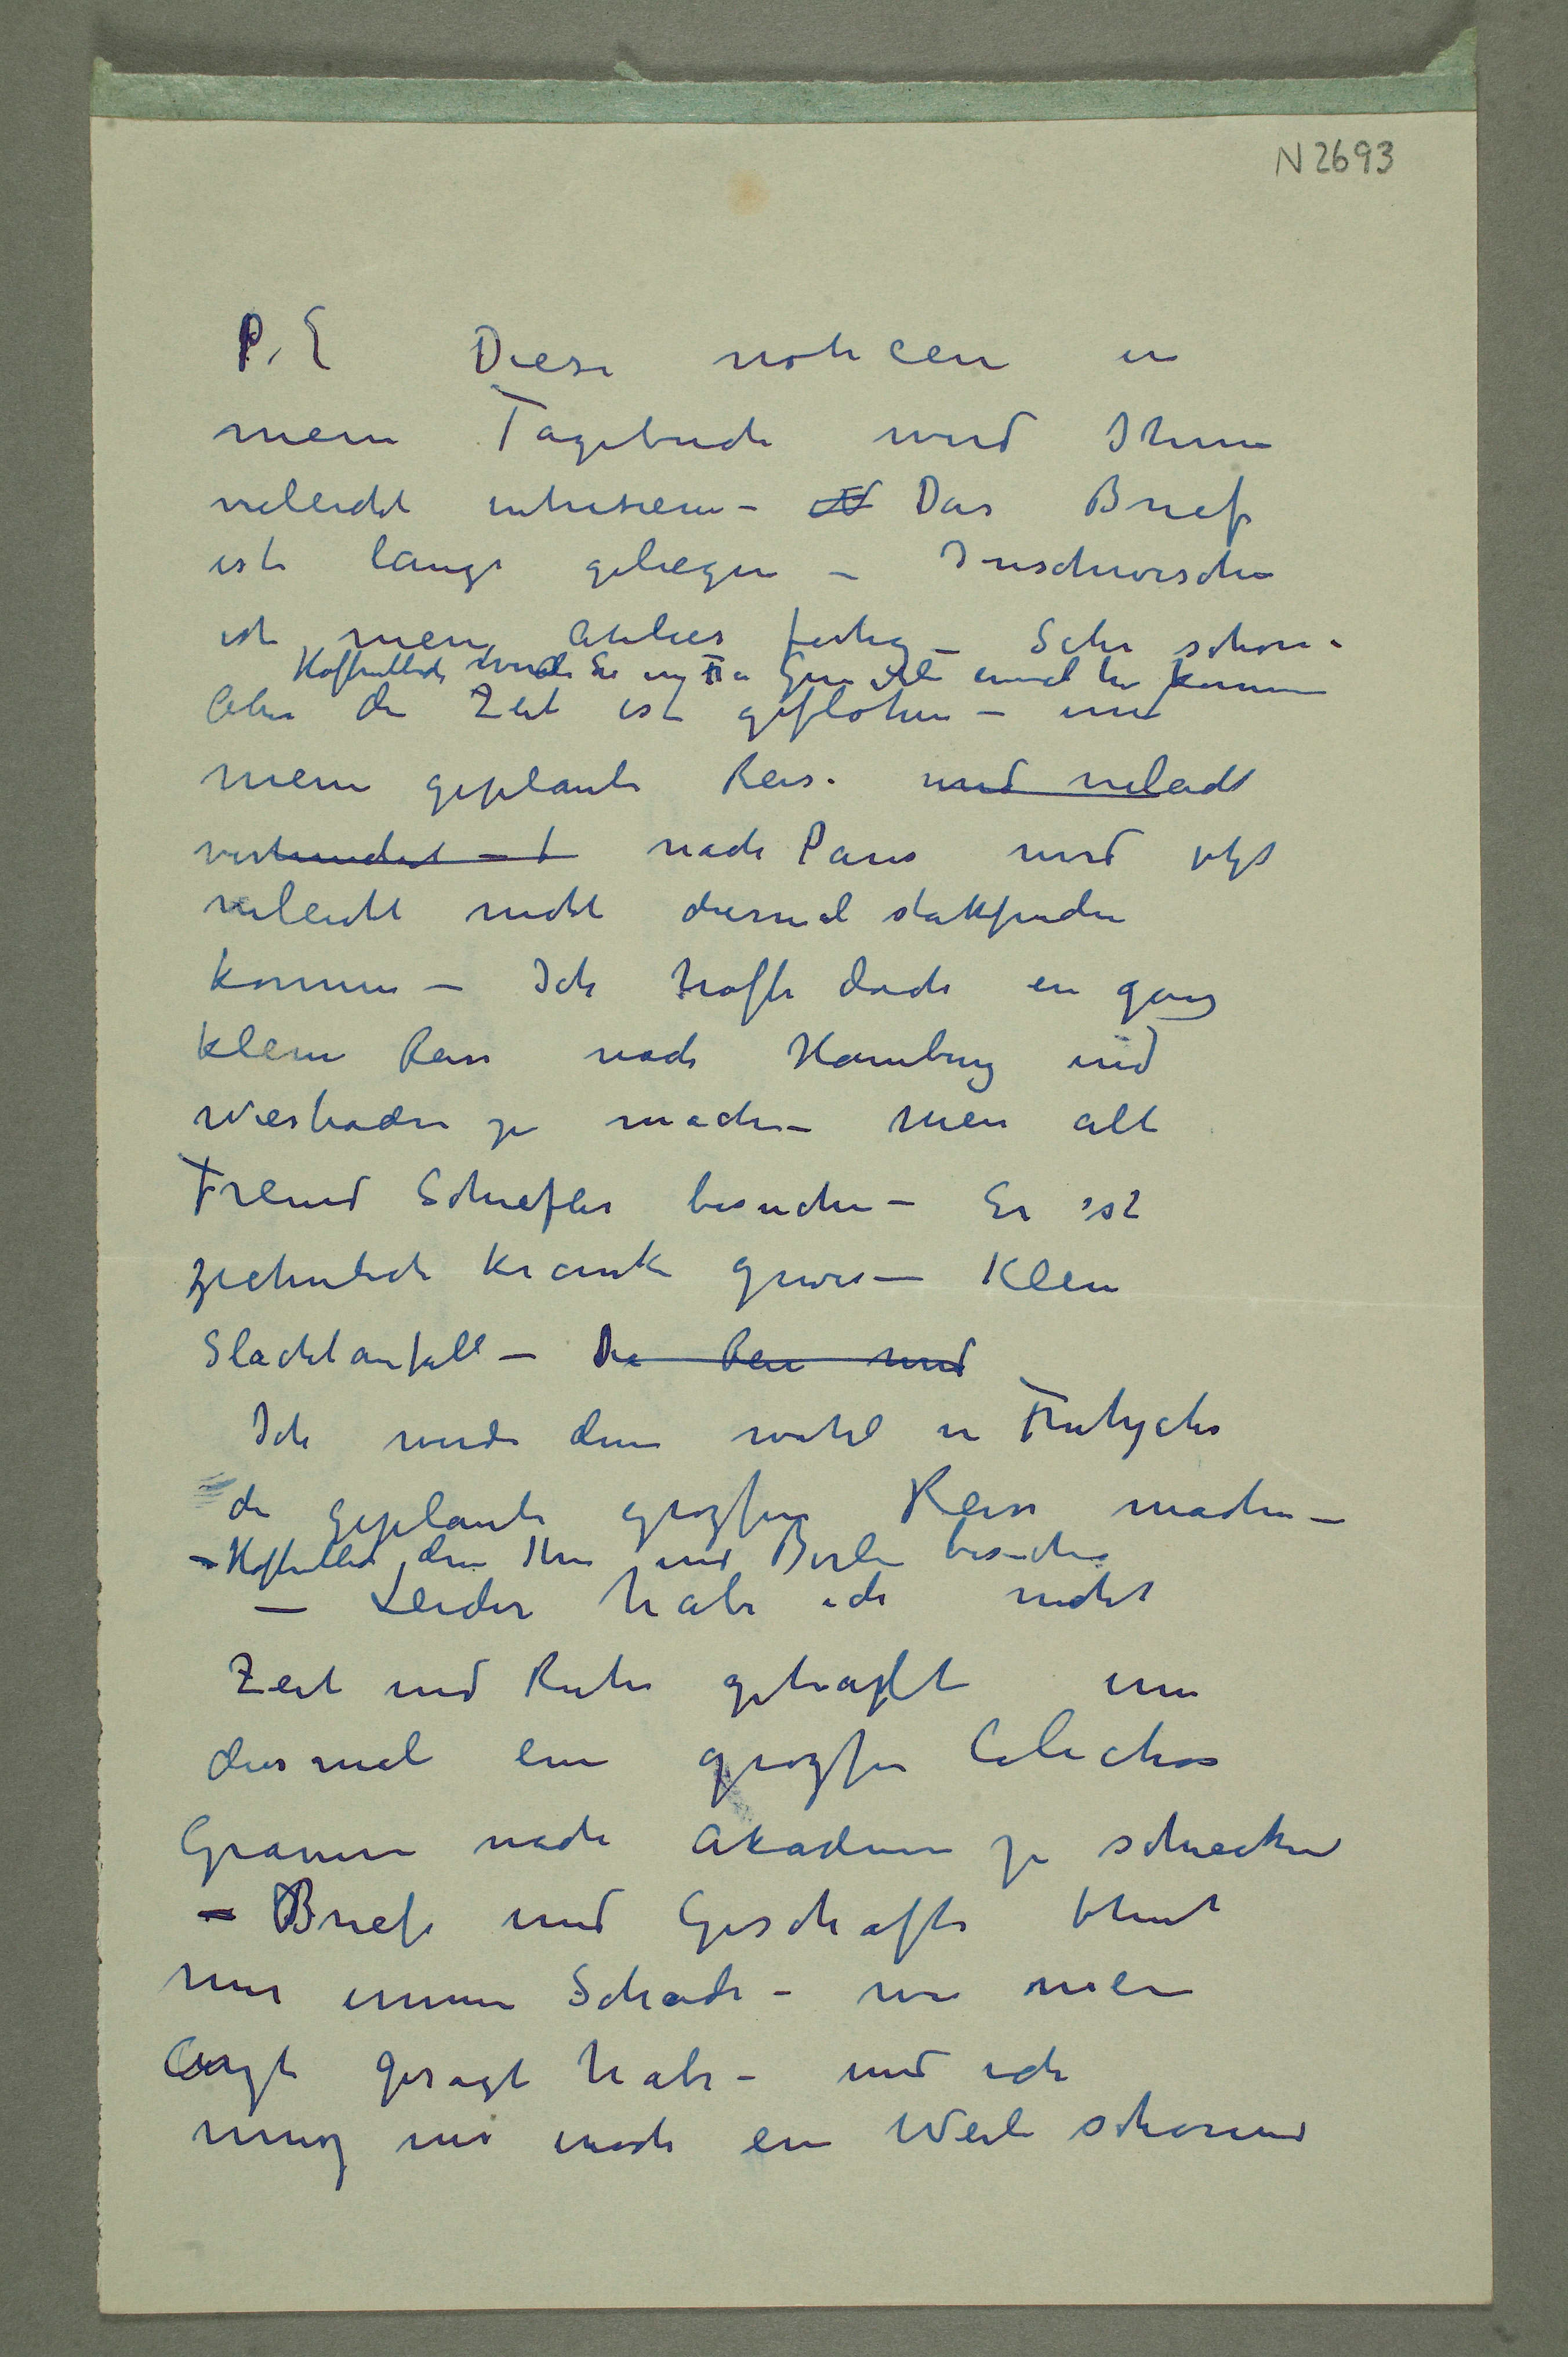 N 2693
P.S Diese noticen in
mein Tagebuch wird Ihnen
vieleicht interesieren – Das Brief
ist lange geliegen – Inschwischen
ist mein Atelier fertig – Sehr schön.
Hoffentlich werde Sie und Fru einmal hir kommen
Aber die Zeit ist geflohen – und
meine geplante Reise und vieleicht
verhindert – nach Paris wird jetzt
vieleicht nicht diesmal stattfinden
können – Ich hoffe doch ein ganz
kleine Reise nach Hamburg und
Wiesbaden zu machen – mein alte
Freund Schiefler besuchen – Er ist
ziehmlich krank gewes – Klein
Slachtanfall – Die Reise wird
Ich werde dann wohl in Frühjahr
die geplante grozse Reise machen –
– Hoffentlich dann Ihn und Berlin besuchen
– Leider habe ich nicht
Zeit und Ruhe gehabt um
diesmal eine grozse Colection
Graveure nach Akademie zu schicken
– Briefe und Geschäfte thut
mir immer Schade – wie mein
Arzt gesagt habe – und ich
muss mir noch ein Weile schonen